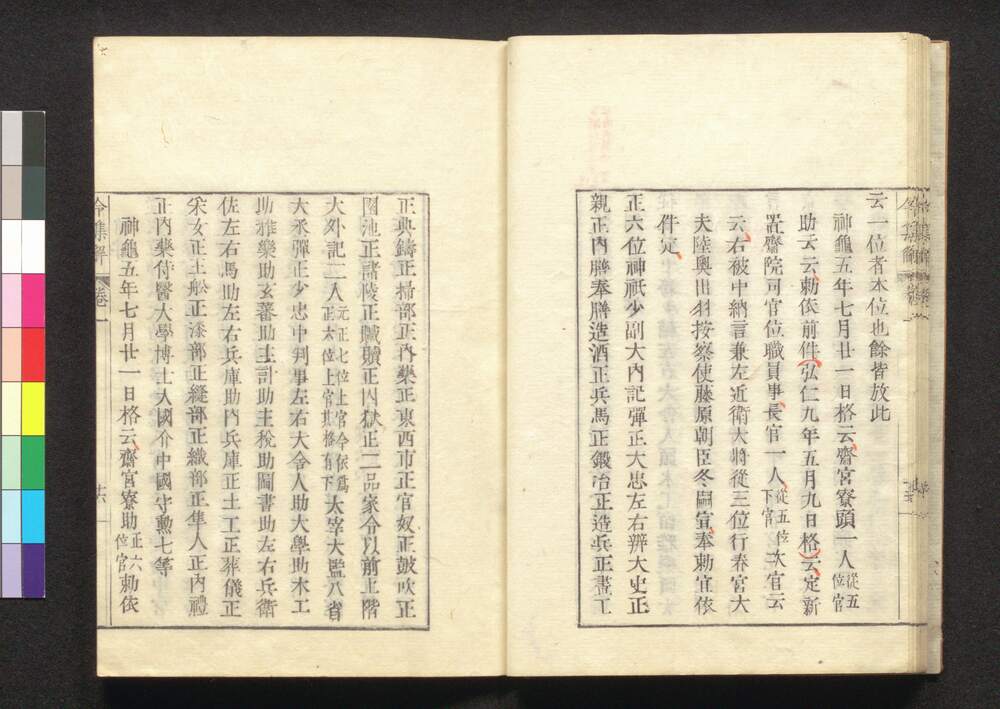 云一位者本位也餘皆放此
神龜五年七月廿一日格云齋宮寮頭一人從五位官
助云云勅依前件弘仁九年五月九日格云定新
置齋院司官位職員事長官一人從五位下官次官云
云右被中納言兼左近衛大將從三位行春宮大
夫陸奧出羽按察使藤原朝臣冬嗣宣奉勅宜依
件定
正六位神祇少副大內記彈正大忠左右辨大史正
親正內膳奉膳造酒正兵馬正鍛冶正造兵正畫工
正典鑄正掃部正內藥正東西市正官奴正鼓吹正
園池正諸陵正贓贖正囚獄正二品家令以前上階
大外記二人元正七位上官今依爲正六位上官其格有下大宰大監八省
大丞彈正少忠中判事左右大舍人助大學助木工
助雅樂助玄蕃助主計助主稅助圖書助左右兵衛
佐左右馬助左右兵庫助內兵庫正土工正葬儀正
采女正主船正漆部正縫部正織部正隼人正內禮
正內藥侍醫大學博士大國介中國守勳七等
神龜五年七月廿一日格云齋宮寮助正六位官勅依
令集解 卷一 十六